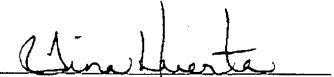 Gina Huerta